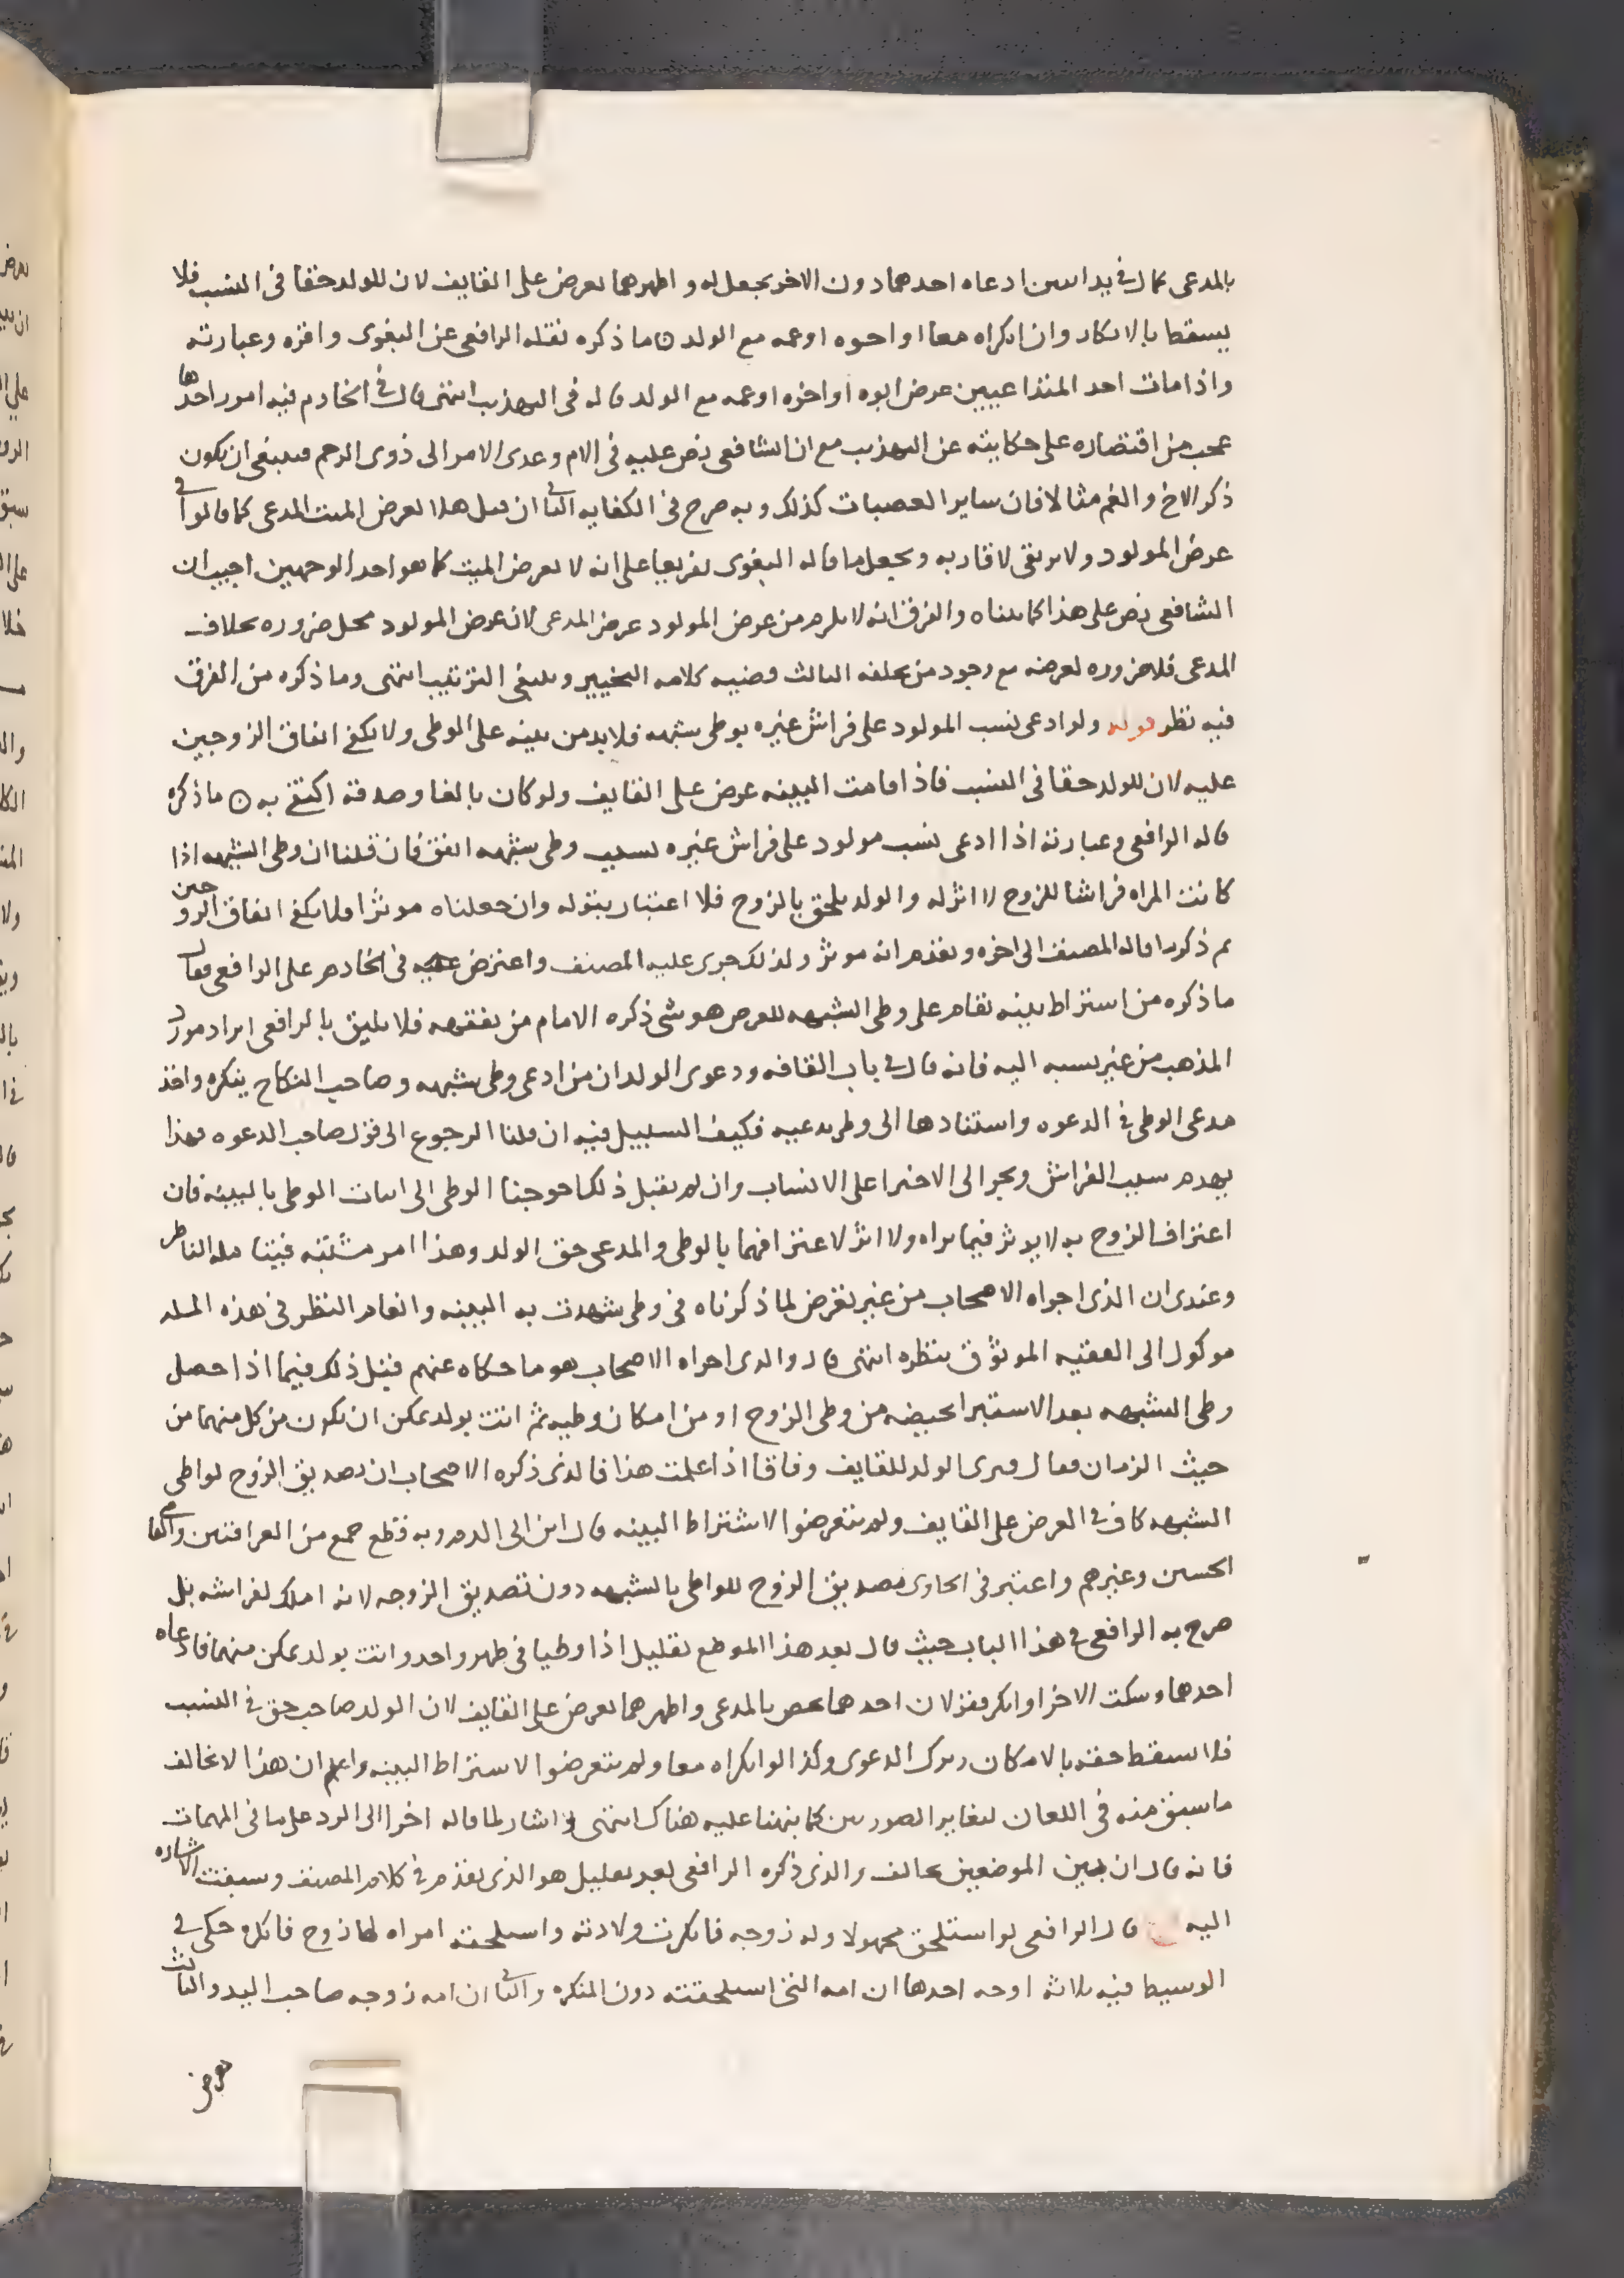 بالمدعى كمال في يد اثنين ادعاه احدهما دون الاخر يجعل له و اظهرهما يعرض على القايف لان للولد حقا فى النسب فلا
يسقط بالانكار وان انكراه معا او اخوه او عمه مع الولد ن ما ذكره نقله الرافعى عن البغوى واقره وعبارته
واذا مات احد المتداعيين عرض ابوه او اخوه او عمه مع الولد قاله فى التهذيب انتهى قال في الخادم فيه امور احدها
عجب من اقتصاره على حكايته عن التهذيب مع ان الشافعى نص عليه فى الام وعدى الامر الى ذوى الرحم فينبغى ان يكون
ذكر الاخ والعم مثالا فان ساير العصبات كذلك وبه صرح فى الكفايه الثانى ان قيل هلا يعرض الميت المدعى كما قالوا فى
عرض المولود ولا يرتقى لاقاربه ويجعل ما قاله البغوى تفريعا على انه لا يعرض الميت كما هو احد الوجهين اجيب ان
الشافعى نص على هذا كما بيناه والفرق انه لا يلزم من عرض المولود عرض المدعى لان عرض المولود محل ضروره بخلاف
المدعى فلا ضروره لعرضه مع وجود من يخلفه الثالث قضيه كلامه التخيير وينبغى الترتيب انتهى وما ذكره من الفرق
فيه نظر قوله ولو ادعى نسب المولود على فراش غيره بوطى شبهه فلا بد من بينه على الوطى ولا يكفى اتفاق الزوجين
عليه لان للولد حقا فى النسب فاذا اقامت البينه عرض على القايف ولو كان بالغا وصدقه اكتفى به ن ما ذكره
قاله الرافعى وعبارته اذا ادعى نسب مولود على فراش غيره بسبب وطى شبهه اتفق فان قلنا ان وطى الشبهه اذا
كانت المراه فراشا للزوج لا اثر له والولد يلحق بالزوج فلا اعتبار بقوله وان جعلناه موثرا فلا يكفى اتفاق الزوجين
ثم ذكر ما قاله المصنف الى اخره وتقدم انه موثر ولذلك جرى عليه المصنف واعترض عليه فى الخادم على الرافعى فقال
ما ذكره من اشتراط بينه تقام على وطى الشبهه للعرض هو شى ذكره الامام من تفقهه فلا يليق بالرافعى ايراد مورد
المذهب من غير نسبه اليه فانه قال في باب القافه ودعوى الولد ان من ادعى وطى شبهه وصاحب النكاح ينكره واخذ
مدعى الوطى فى الدعوه واستنادها الى وطى يدعيه فكيف السبيل فيه ان قلنا الرجوع الى قول صاحب الدعوه فهذا
يهدم سبب الفراش ويجر الى الاجترا على الانساب وان لم نقبل ذلك احوجنا الوطى الى اثبات الوطى بالبينه فان
اعتراف الزوج به لا يوثر فيما نراه ولا اثر لاعترافهما بالوطى والمدعى حق الولد وهذا امر مشتبه فيتامله الناظر
وعندى ان الذى اجراه الاصحاب من غير تعرض لما ذكرناه فى وطى شهدت به البينه وانعام النظر فى هذه المسله
موكول الى الفقيه الموثوق بنظره انتهى قال والذى اجراه الاصحاب هو ما حكاه عنهم قبل ذلك فيما اذا حصل
وطى الشبهه بعد الاستبرا بحيضه من وطى الزوج او من امكان وطيه ثم اتت بولد يمكن ان يكون من كل منهما من
حيث الزمان فقال فيرى الولد للقايف وفاقا اذا علمت هذا فالذى ذكره الاصحاب ان تصديق الزوج لواطى
الشبهه كاف فى العرض على القايف ولم يتعرضوا لاشتراط البينه قال ابن ابى الدم وبه قطع جمع من العراقيين والقاضى
الحسين وغيرهم واعتبر فى الحاوى تصديق الزوج للواطى بالشبهه دون تصديق الزوجه لانه املك لفراشه بل
صرح به الرافعى فى هذا الباب حيث قال بعد هذا الموضع بقليل اذا وطيا فى طهر واحد واتت بولد يمكن منهما فادعاه
احدهما وسكت الاخر او انكر فقولان احدهما يختص بالمدعى واظهرهما يعرض على القايف لان الولد صاحب حق فى النسب
فلا يسقط حقه بالانكار وترك الدعوى وكذا لو انكراه معا ولم يتعرضوا لاشتراط البينه واعلم ان هذا لا يخالف
ما سبق منه فى اللعان لتغاير الصورتين كما نبهنا عليه هناك انتهى واشار لما قاله اخرا الى الرد على ما فى المهمات
فانه قال ان بين الموضعين تخالف والذى ذكره الرافعى بعد بقليل هو الذى تقدم فى كلام المصنف وسبقت الاشاره
اليه قال الرافعى لو استلحق مجهولا وله زوجه فانكرت ولادته واستلحقته امراه لها زوج فانكره حكى في
الوسيط فيه ثلاثه اوجه احدها ان امه التى استلحقته دون المنكره والثانى ان امه زوجه صاحب اليد والثالث
يعرض